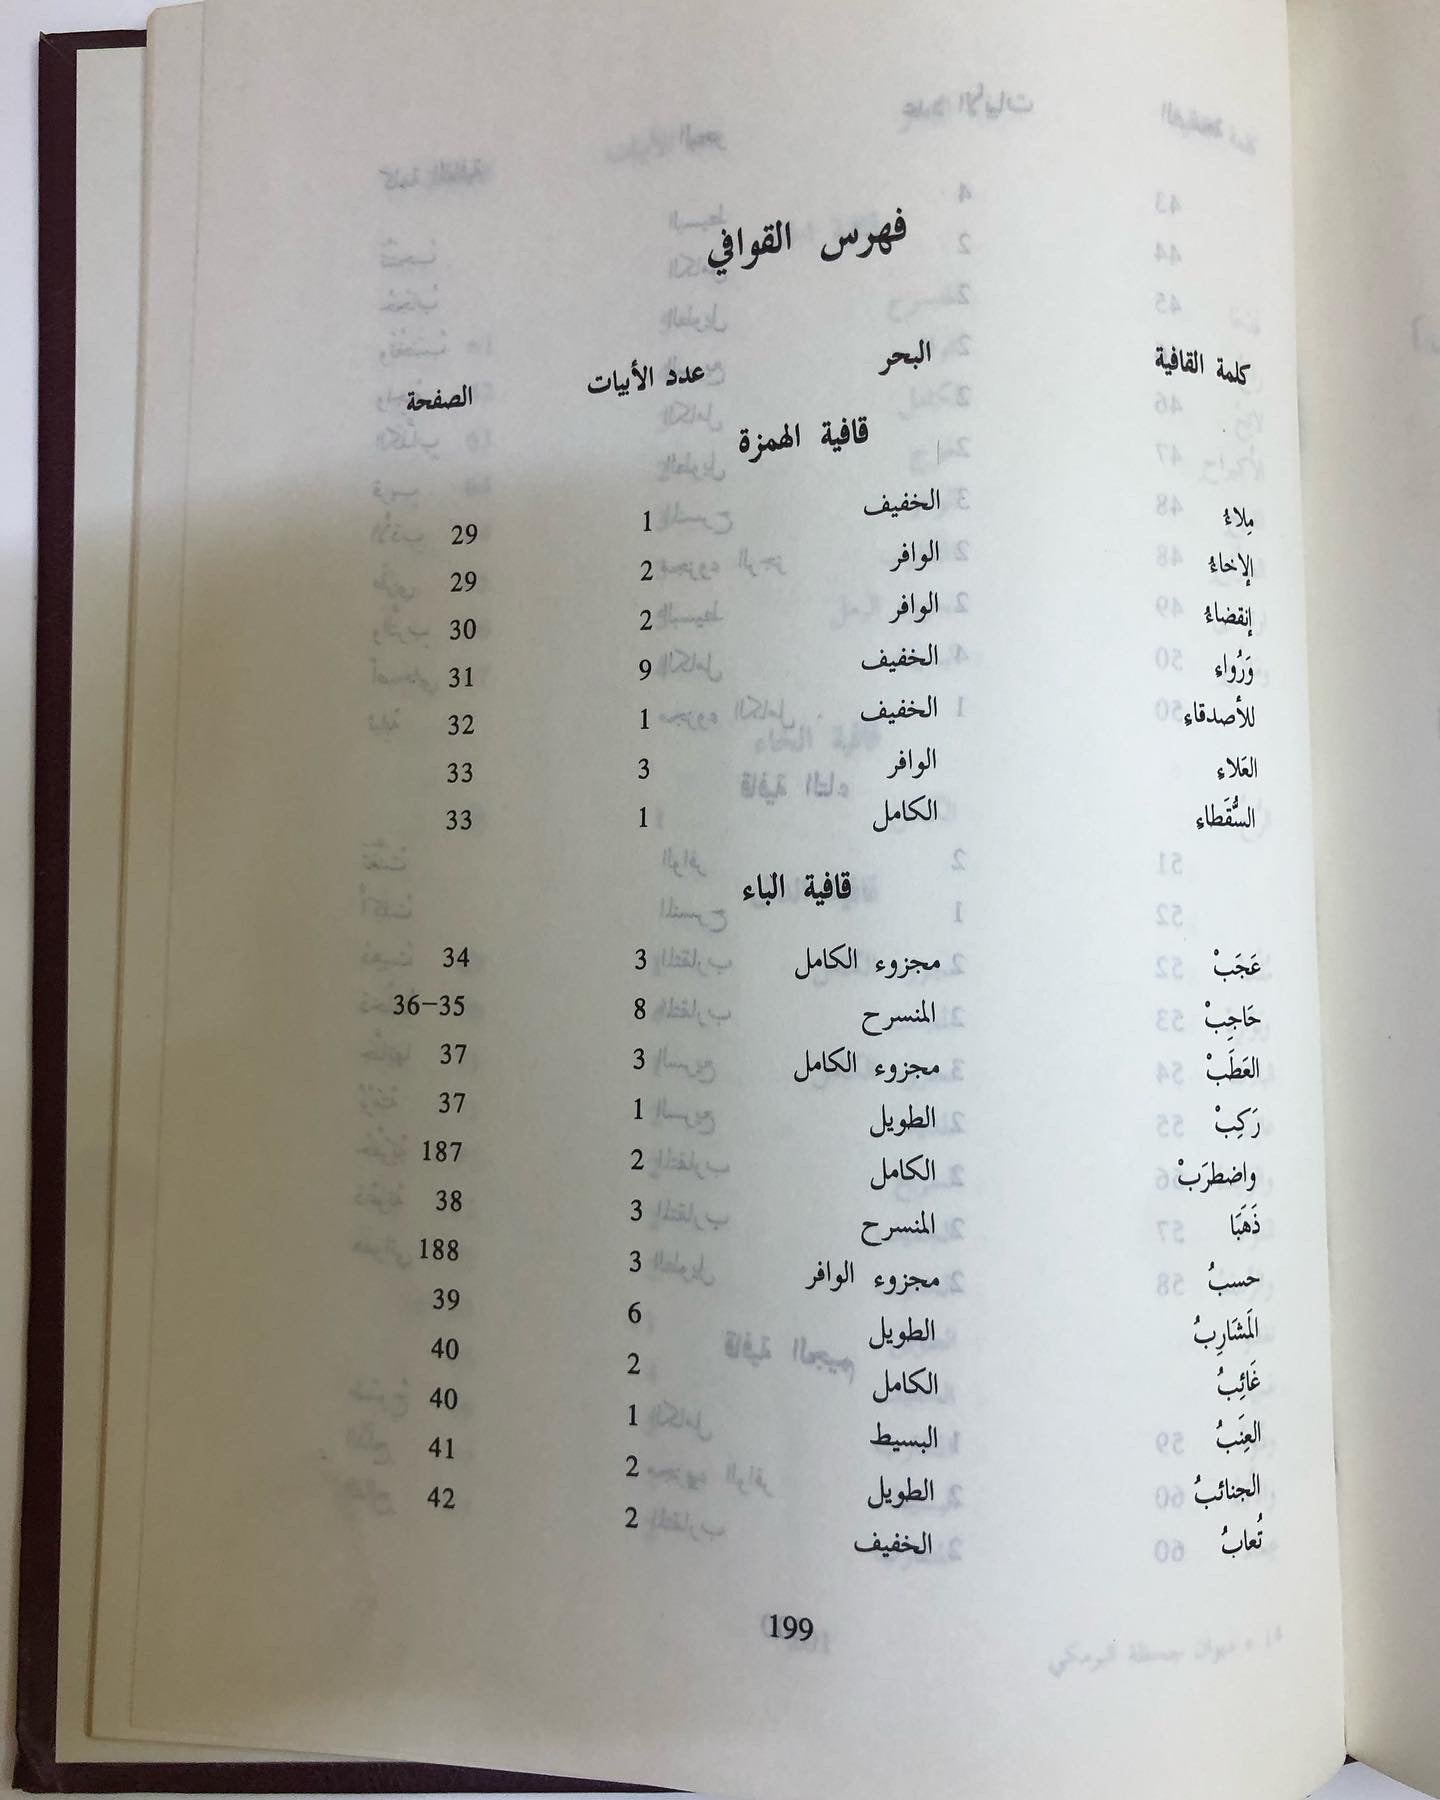 فهرس القوافي
كلمة القافية البحر عدد الأبيات الصفحة
قافية الهمزة
مِلاءُ الخفيف 1 29
الإخاءُ الوافر 2 29
إنقضاءُ الوافر 2 30
وَرُواءِ الخفيف 9 31
للأصدقاءِ الخفيف 1 32
العَلاءِ الوافر 3 33
السُّقَطاءِ الكامل 1 33
قافية الباء
عَجَبْ مجزوء الكامل 3 34
حَاجِبْ المنسرح 8 35–36
العَطَبْ مجزوء الكامل 3 37
رَكِبْ الطويل 1 37
واضطرَبْ الكامل 2 187
ذَهَبَا المنسرح 3 38
حسبُ مجزوء الوافر 3 188
المَشَارِبُ الطويل 6 39
غَائِبُ الكامل 2 40
العِنَبُ البسيط 1 40
الجنائبُ الطويل 2 41
تُعابُ الخفيف 2 42
199